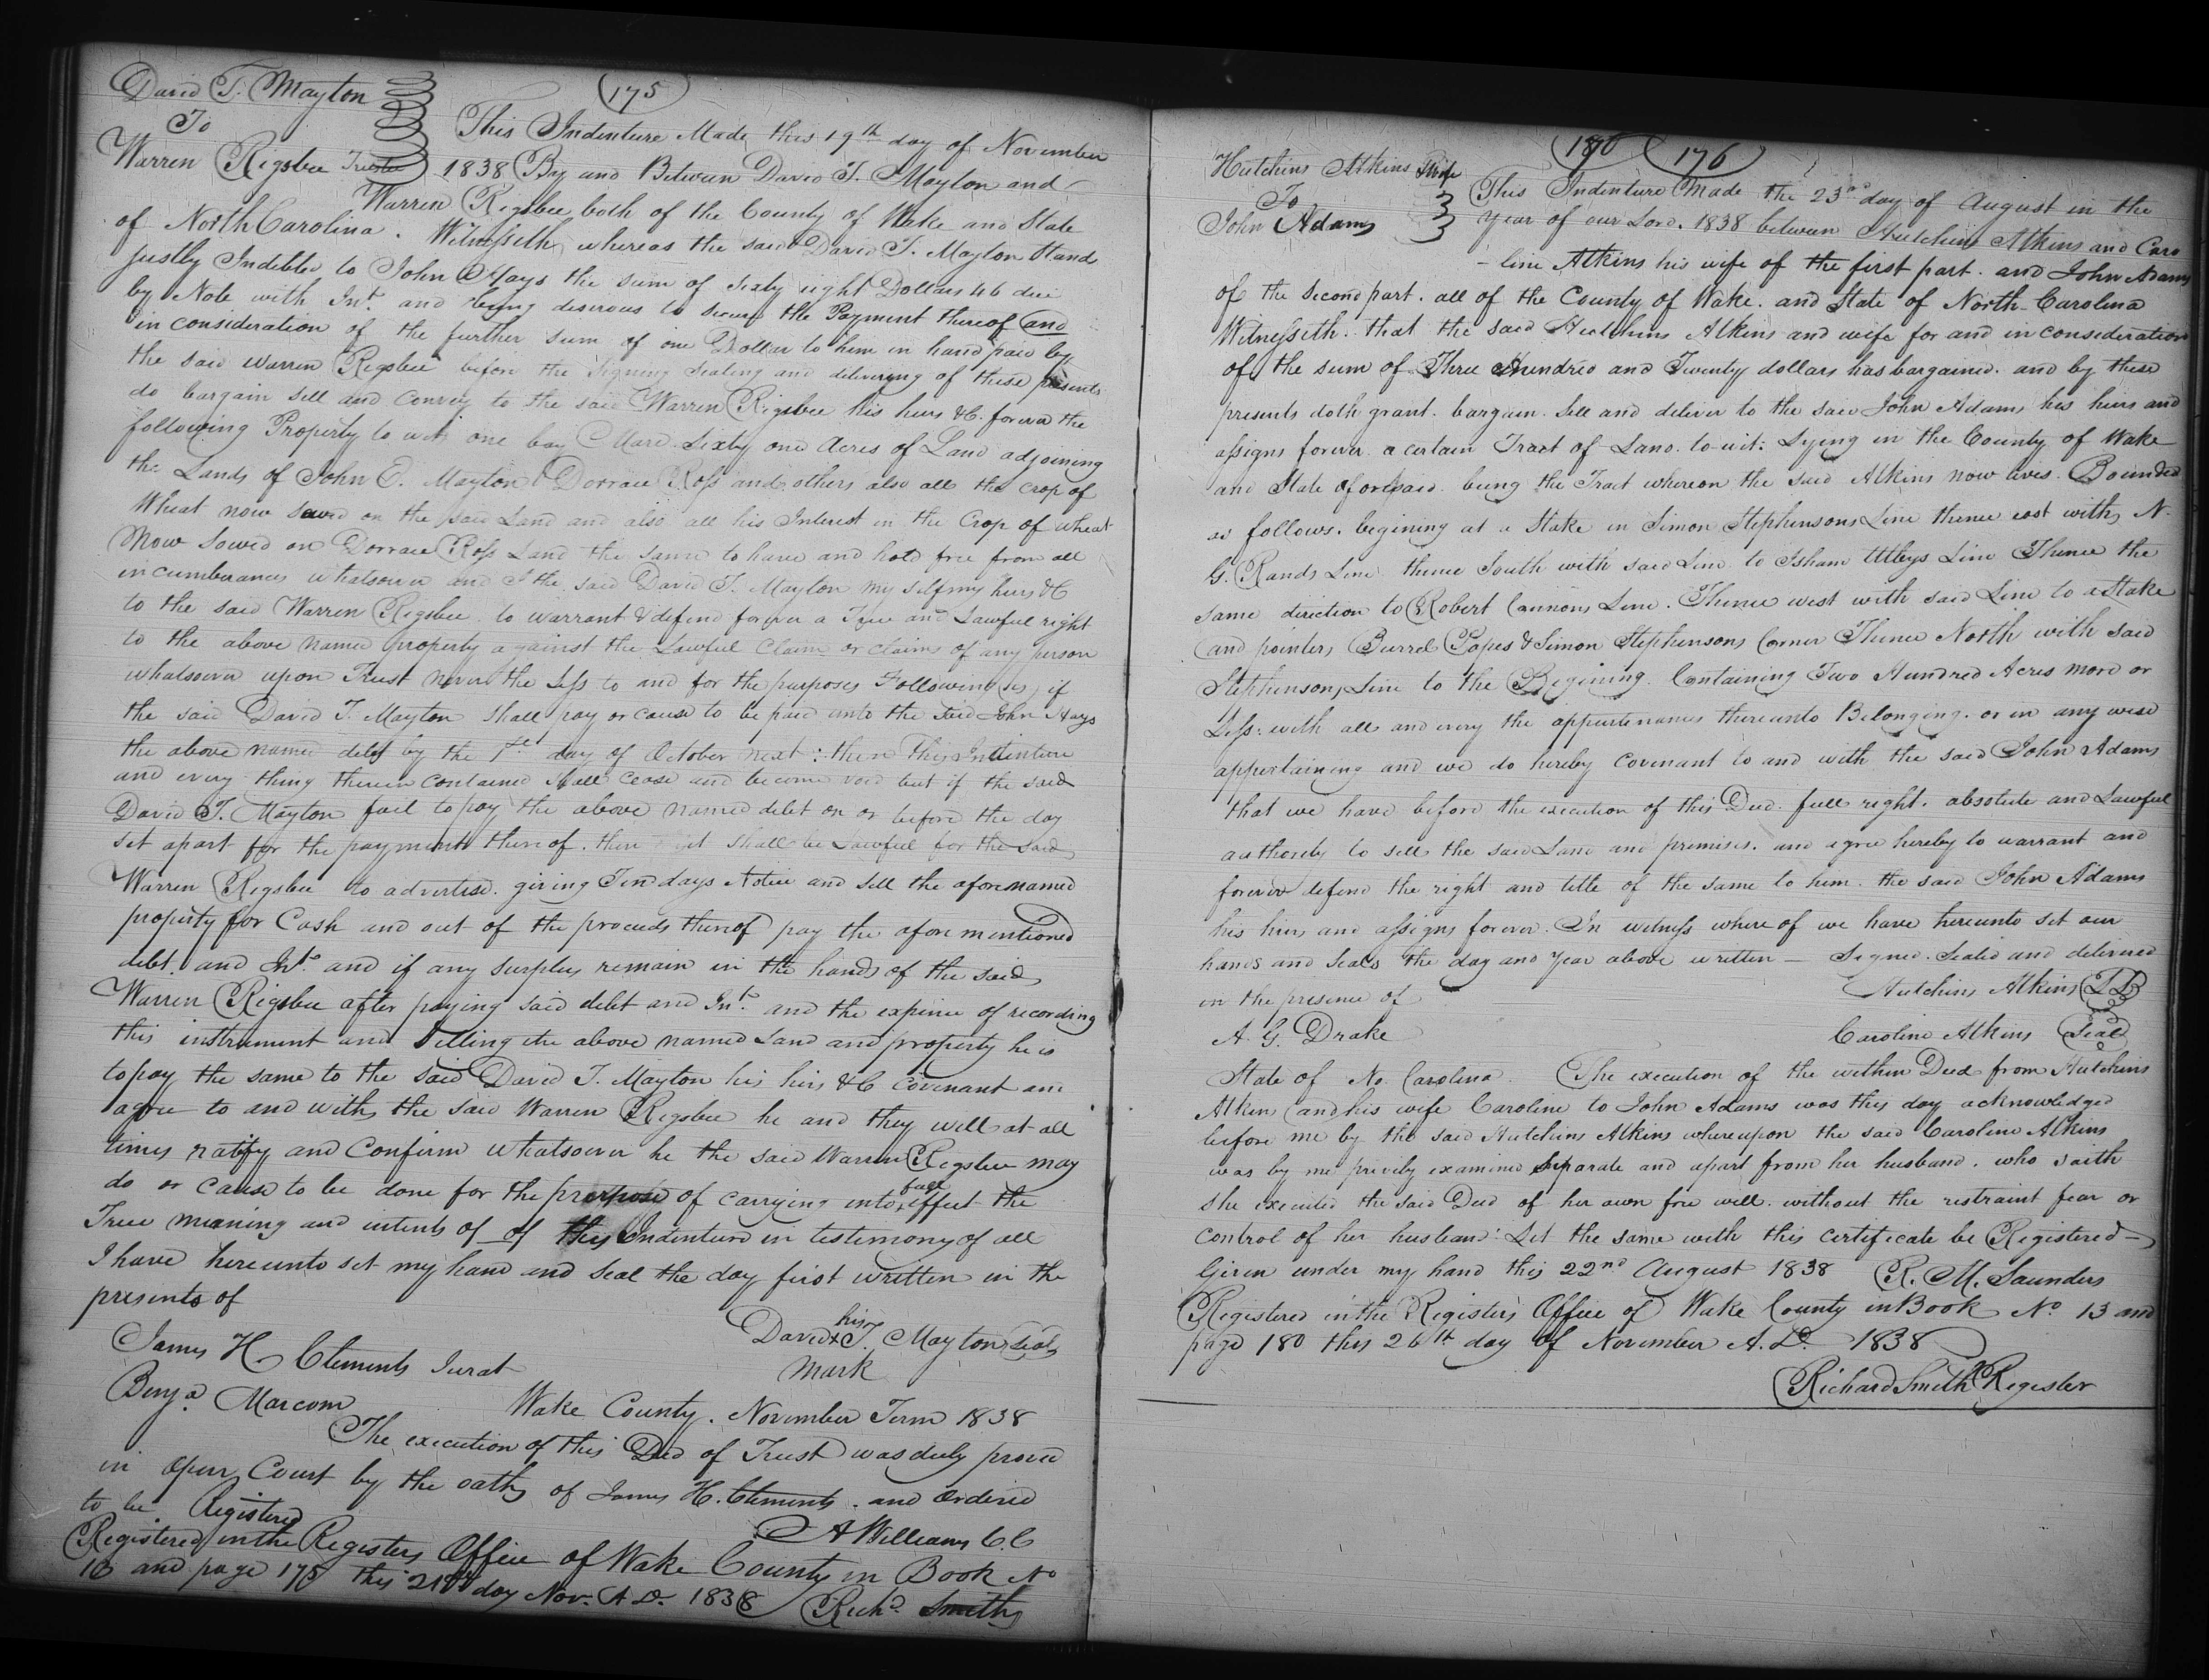 175
David T. Mayton
To
Warren Rigsbee Trustee
This Indenture Made this 19th day of November
1838 By and Between David T. Mayton and
Warren Rigsbee both of the County of Wake and State
of North Carolina. Witnesseth whereas the said David T. Mayton Stand
justly Indebted to John Hays the sum of sixty eight Dollars 46 due
by Note with Int. and being desirous to secure the Payment thereof and
in consideration of the further sum of one Dollar to him in hand paid by
the said Warren Rigsbee before the Signing Sealing and delivering of these presents
do bargain sell and convey to the said Warren Rigsbee his heirs &C. forever the
following Property to wit, one bay Mare Sixty one Acres of Land adjoining
the Lands of John E. Mayton Dorrace Ross and others also all the crop of
Wheat now sowed on the said Land and also all his Interest in the Crop of wheat
Now Sowed on Dorrace Ross Land the same to have and hold free from all
incumberances whatsoever and I the said David T. Mayton my self my heirs &C
to the said Warren Rigsbee to warrant & defend forever a True and Lawful right
to the above named property against the Lawful Claim or claims of any person
whatsoever upon Trust never the less to and for the purposes Following if
the said David T. Mayton shall pay or cause to be paid unto the said John Hays
the above named debt by the 1st day of October next: then This Indenture
and every thing therein contained shall cease and become void but if the said
David T. Mayton fail to pay the above named debt on or before the day
set apart for the payment thereof. then it shall be Lawful for the said
Warren Rigsbee to advertise. giving Ten days Notice and sell the aforenamed
property for Cash and out of the proceeds thereof pay the afore mentioned
debt. and Int. and if any surplus remain in the hands of the said
Warren Rigsbee after paying said debt and Int. and the expince of recording
this instrument and Selling the above named Land and property he is
to pay the same to the said David T. Mayton his heirs &C Covenant and
agree to and with the said Warren Rigsbee he and they will at all
times ratify and Confirm whatsoever he the said Warren Rigsbee may
do or cause to be done for the purpose of carrying into full effect the
True meaning and intents of of this Indenture in testimony of all
I have hereunto set my hand and Seal the day first written in the
presents of
James H Clements Jurat
Benja. Marcom
his
David X T. Mayton Seal
mark
Wake County. November Term 1838
The execution of this Deed of Trust was duly proved
in Open Court by the oath of James H. Clements. and Ordered
to be Registered
A Williams C.C
Registered in the Registers Office of Wake County in Book No
13 and page 175 this 21st day Nov. A D. 1838 Richd. Smith
180 176
Hutchins Atkins & wife
To
John Adams
This Indenture Made the 23rd day of August in the
year of our Lord. 1838 between Hutchins Atkins and Caro
-line Atkins his wife of the first part. and John Adams
of the second part. all of the County of Wake. and State of North-Carolina
Witnesseth. that the said Hutchins Atkins and wife for and in consideration
of the sum of Three Hundred and Twenty dollars has bargained. and by these
presents doth grant. bargain. sell and deliver to the said John Adams his heirs and
assigns forever a certain Tract of Land. to-wit: Lying in the County of Wake
and State aforesaid. being the Tract whereon the said Atkins now lives. Bounded
as follows. begining at a Stake in Simon Stephensons Line thence east with N.
G. Rands Line thence South with said Line to Isham Utleys Line Thence the
same direction to Robert Cannons Line. Thence west with said Line to a Stake
and pointers Burrel Popes & Simon Stephensons Corner Thence North with said
Stephensons Line to the Begining. Containing Two Hundred Acres more or
Less. with all and every the appurtenances thereunto Belonging. or in any wise
appertaining and we do hereby covenant to and with the said John Adams
that we have before the execution of this Deed. full right. absolute and Lawful
authority to sell the said Land and premises. and agree hereby to warrant and
forever defend the right and title of the same to him. the said John Adams
his heirs and assigns forever. In witness where of we have hereunto set our
hands and Seals the day and year above written — Signed. Sealed and delivered
in the presence of
Hutchins Atkins
A. G. Drake
Caroline Atkins Seal
State of No. Carolina. The execution of the within Deed from Hutchins
Atkins and his wife Caroline to John Adams was this day acknowledged
before me by the said Hutchins Atkins whereupon the said Caroline Atkins
was by me privily examined separate and apart from her husband. who saith
she executed the said Deed of her own free will. without the restraint fear or
control of her husband: Let the same with this certificate be Registered—
Given under my hand this 22nd August 1838 R. M. Saunders
Registered in the Registers Office of Wake County in Book No 13 and
page 180 this 26th day of November A. D. 1838
Richard Smith Register